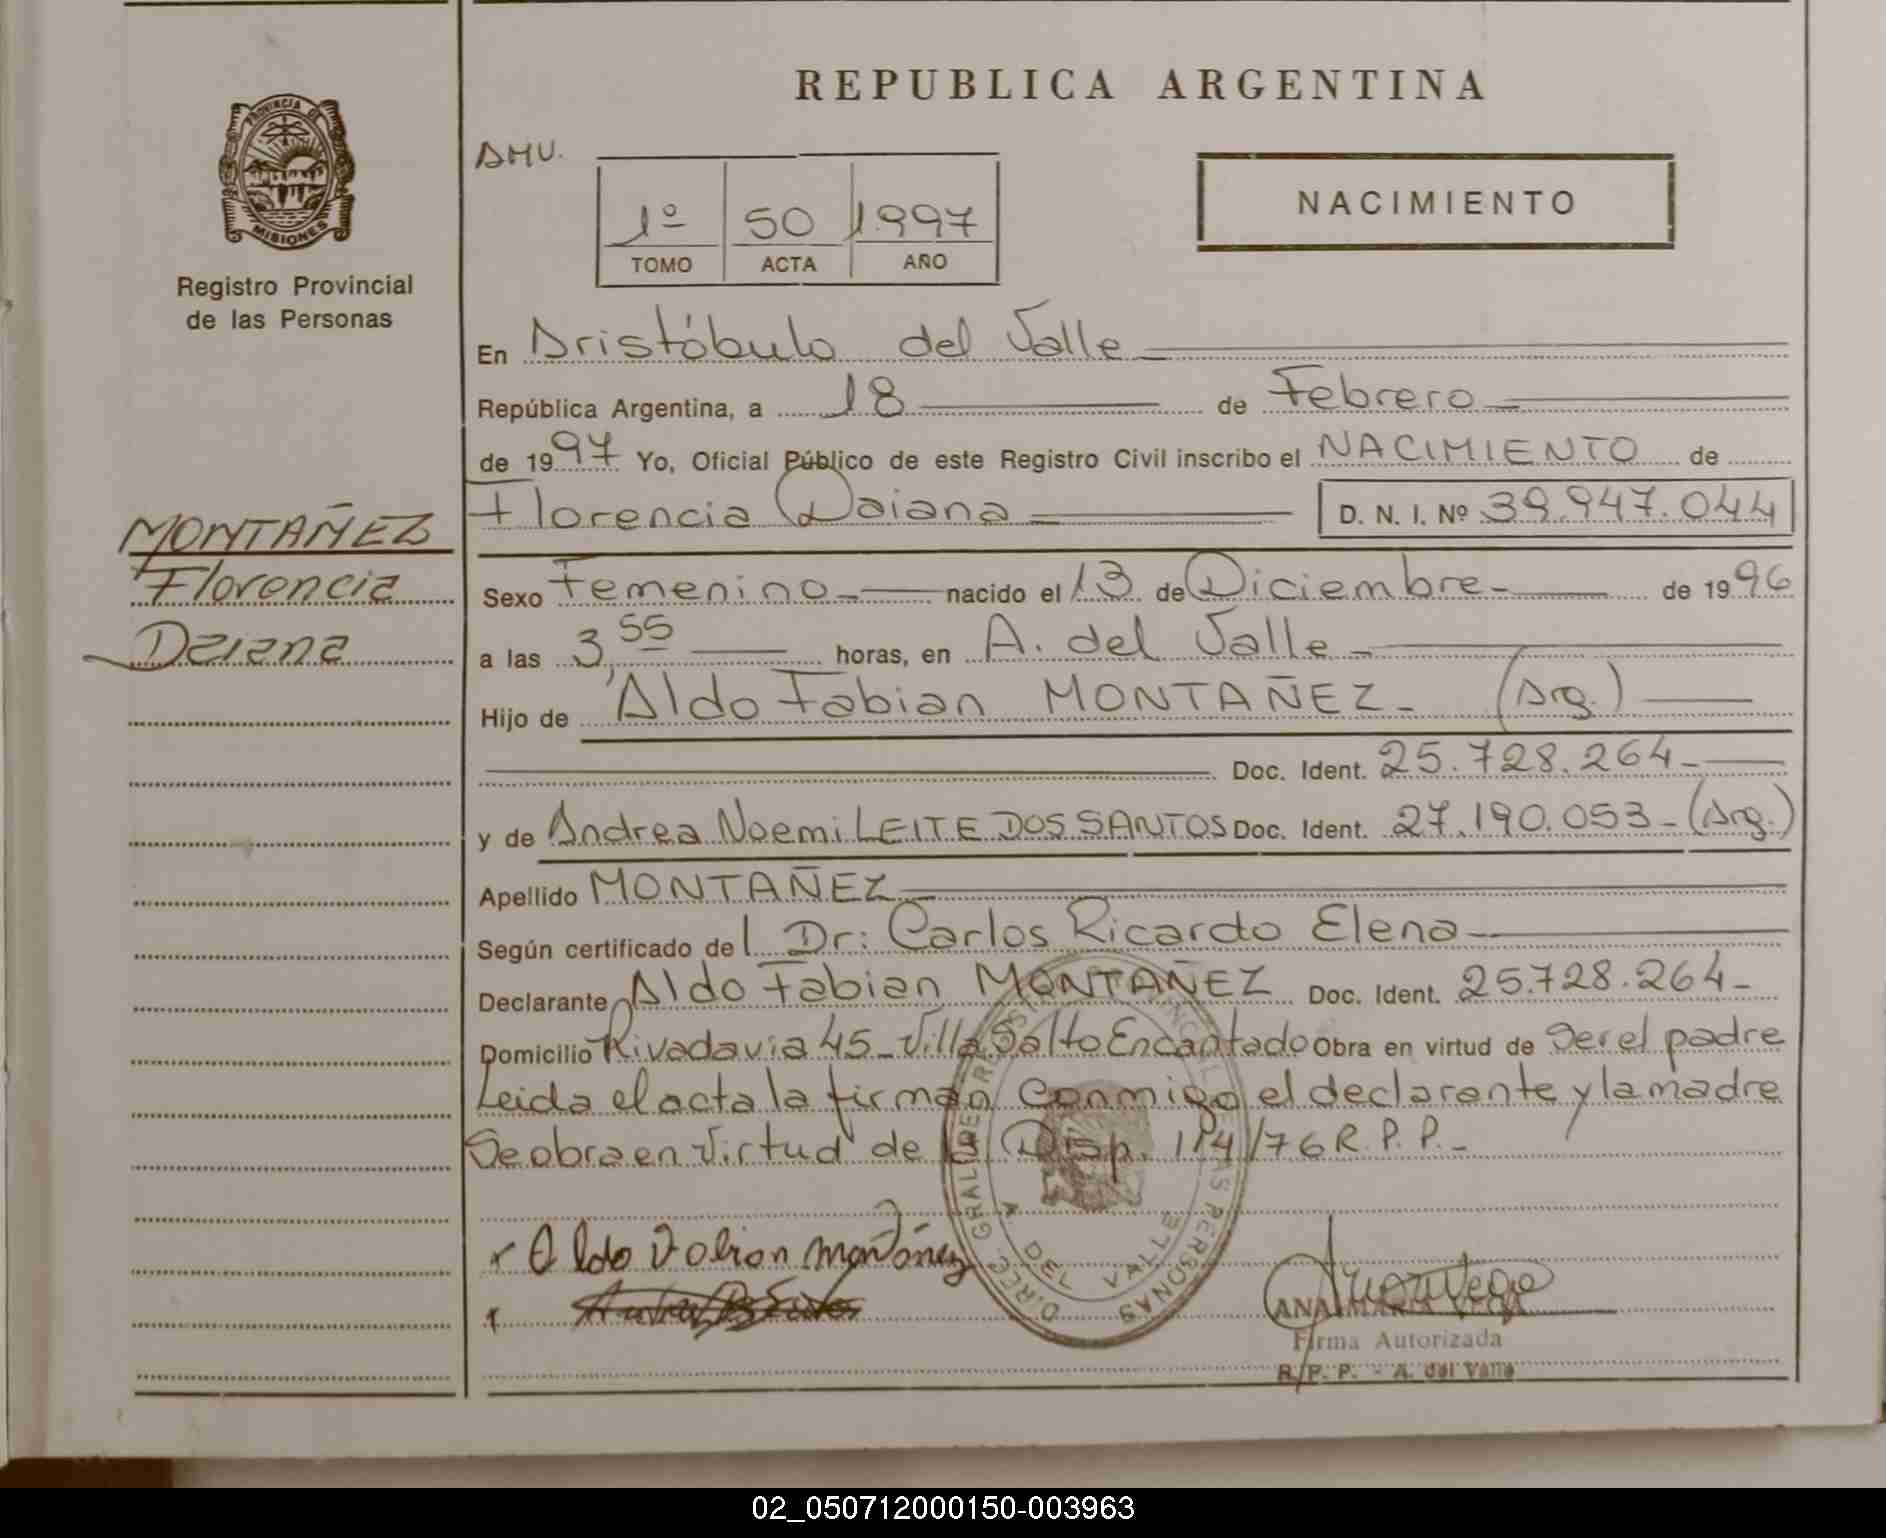 REPUBLICA ARGENTINA
PROVINCIA DE
MISIONES
Registro Provincial
de las Personas
AMV.
1º 50 1.997
TOMO ACTA AÑO
NACIMIENTO
En Aristóbulo del Valle
República Argentina, a 18 de Febrero
de 1997 Yo, Oficial Público de este Registro Civil inscribo el NACIMIENTO de
Florencia Daiana D. N. I. Nº 39.947.044
MONTAÑEZ
Florencia
Daiana
Sexo Femenino nacido el 13 de Diciembre de 1996
a las 3,55 horas, en A. del Valle
Hijo de Aldo Fabian MONTAÑEZ (Arg.)
Doc. Ident. 25.728.264
y de Andrea Noemi LEITE DOS SANTOS Doc. Ident. 27.190.053 (Arg.)
Apellido MONTAÑEZ
Según certificado del Dr: Carlos Ricardo Elena
Declarante Aldo Fabian MONTAÑEZ Doc. Ident. 25.728.264
Domicilio Rivadavia 45 - Villa Salto Encantado Obra en virtud de Ser el padre
Leida el acta la firman conmigo el declarante y la madre
Se obra en virtud de la Disp. 114/76 R. P. P.
x Aldo Fabian Montañez
DIREC. GRAL. DE REGISTRO PROVINCIAL DE LAS PERSONAS
A. DEL VALLE
ANA MARIA VEGA
Firma Autorizada
R. P. P. - A. del Valle
02_050712000150-003963